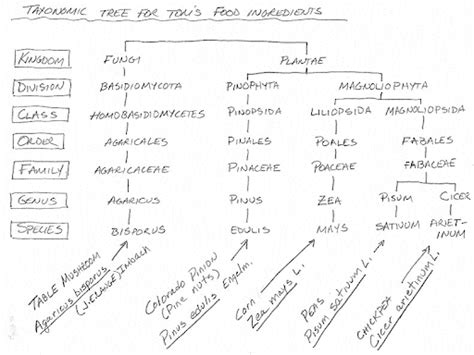 TAXONOMIC TREE FOR TORI'S FOOD INGREDIENTS
KINGDOM FUNGI PLANTAE
DIVISION BASIDIOMYCOTA PINOPHYTA MAGNOLIOPHYTA
CLASS HOMOBASIDIOMYCETES PINOPSIDA LILIOPSIDA MAGNOLIOPSIDA
ORDER AGARICALES PINALES POALES FABALES
FAMILY AGARICACEAE PINACEAE POACEAE FABACEAE
GENUS AGARICUS PINUS ZEA PISUM CICER
SPECIES BISPORUS EDULIS MAYS SATIVUM ARIET-
INUM
TABLE MUSHROOM
Agaricus bisporus
(J.E.LANGE) Imbach
COLORADO PINION
(Pine nuts)
Pinus edulis Engelm.
CORN
Zea mays L.
PEAS
Pisum sativum L.
CHICKPEA
Cicer arietinum L.